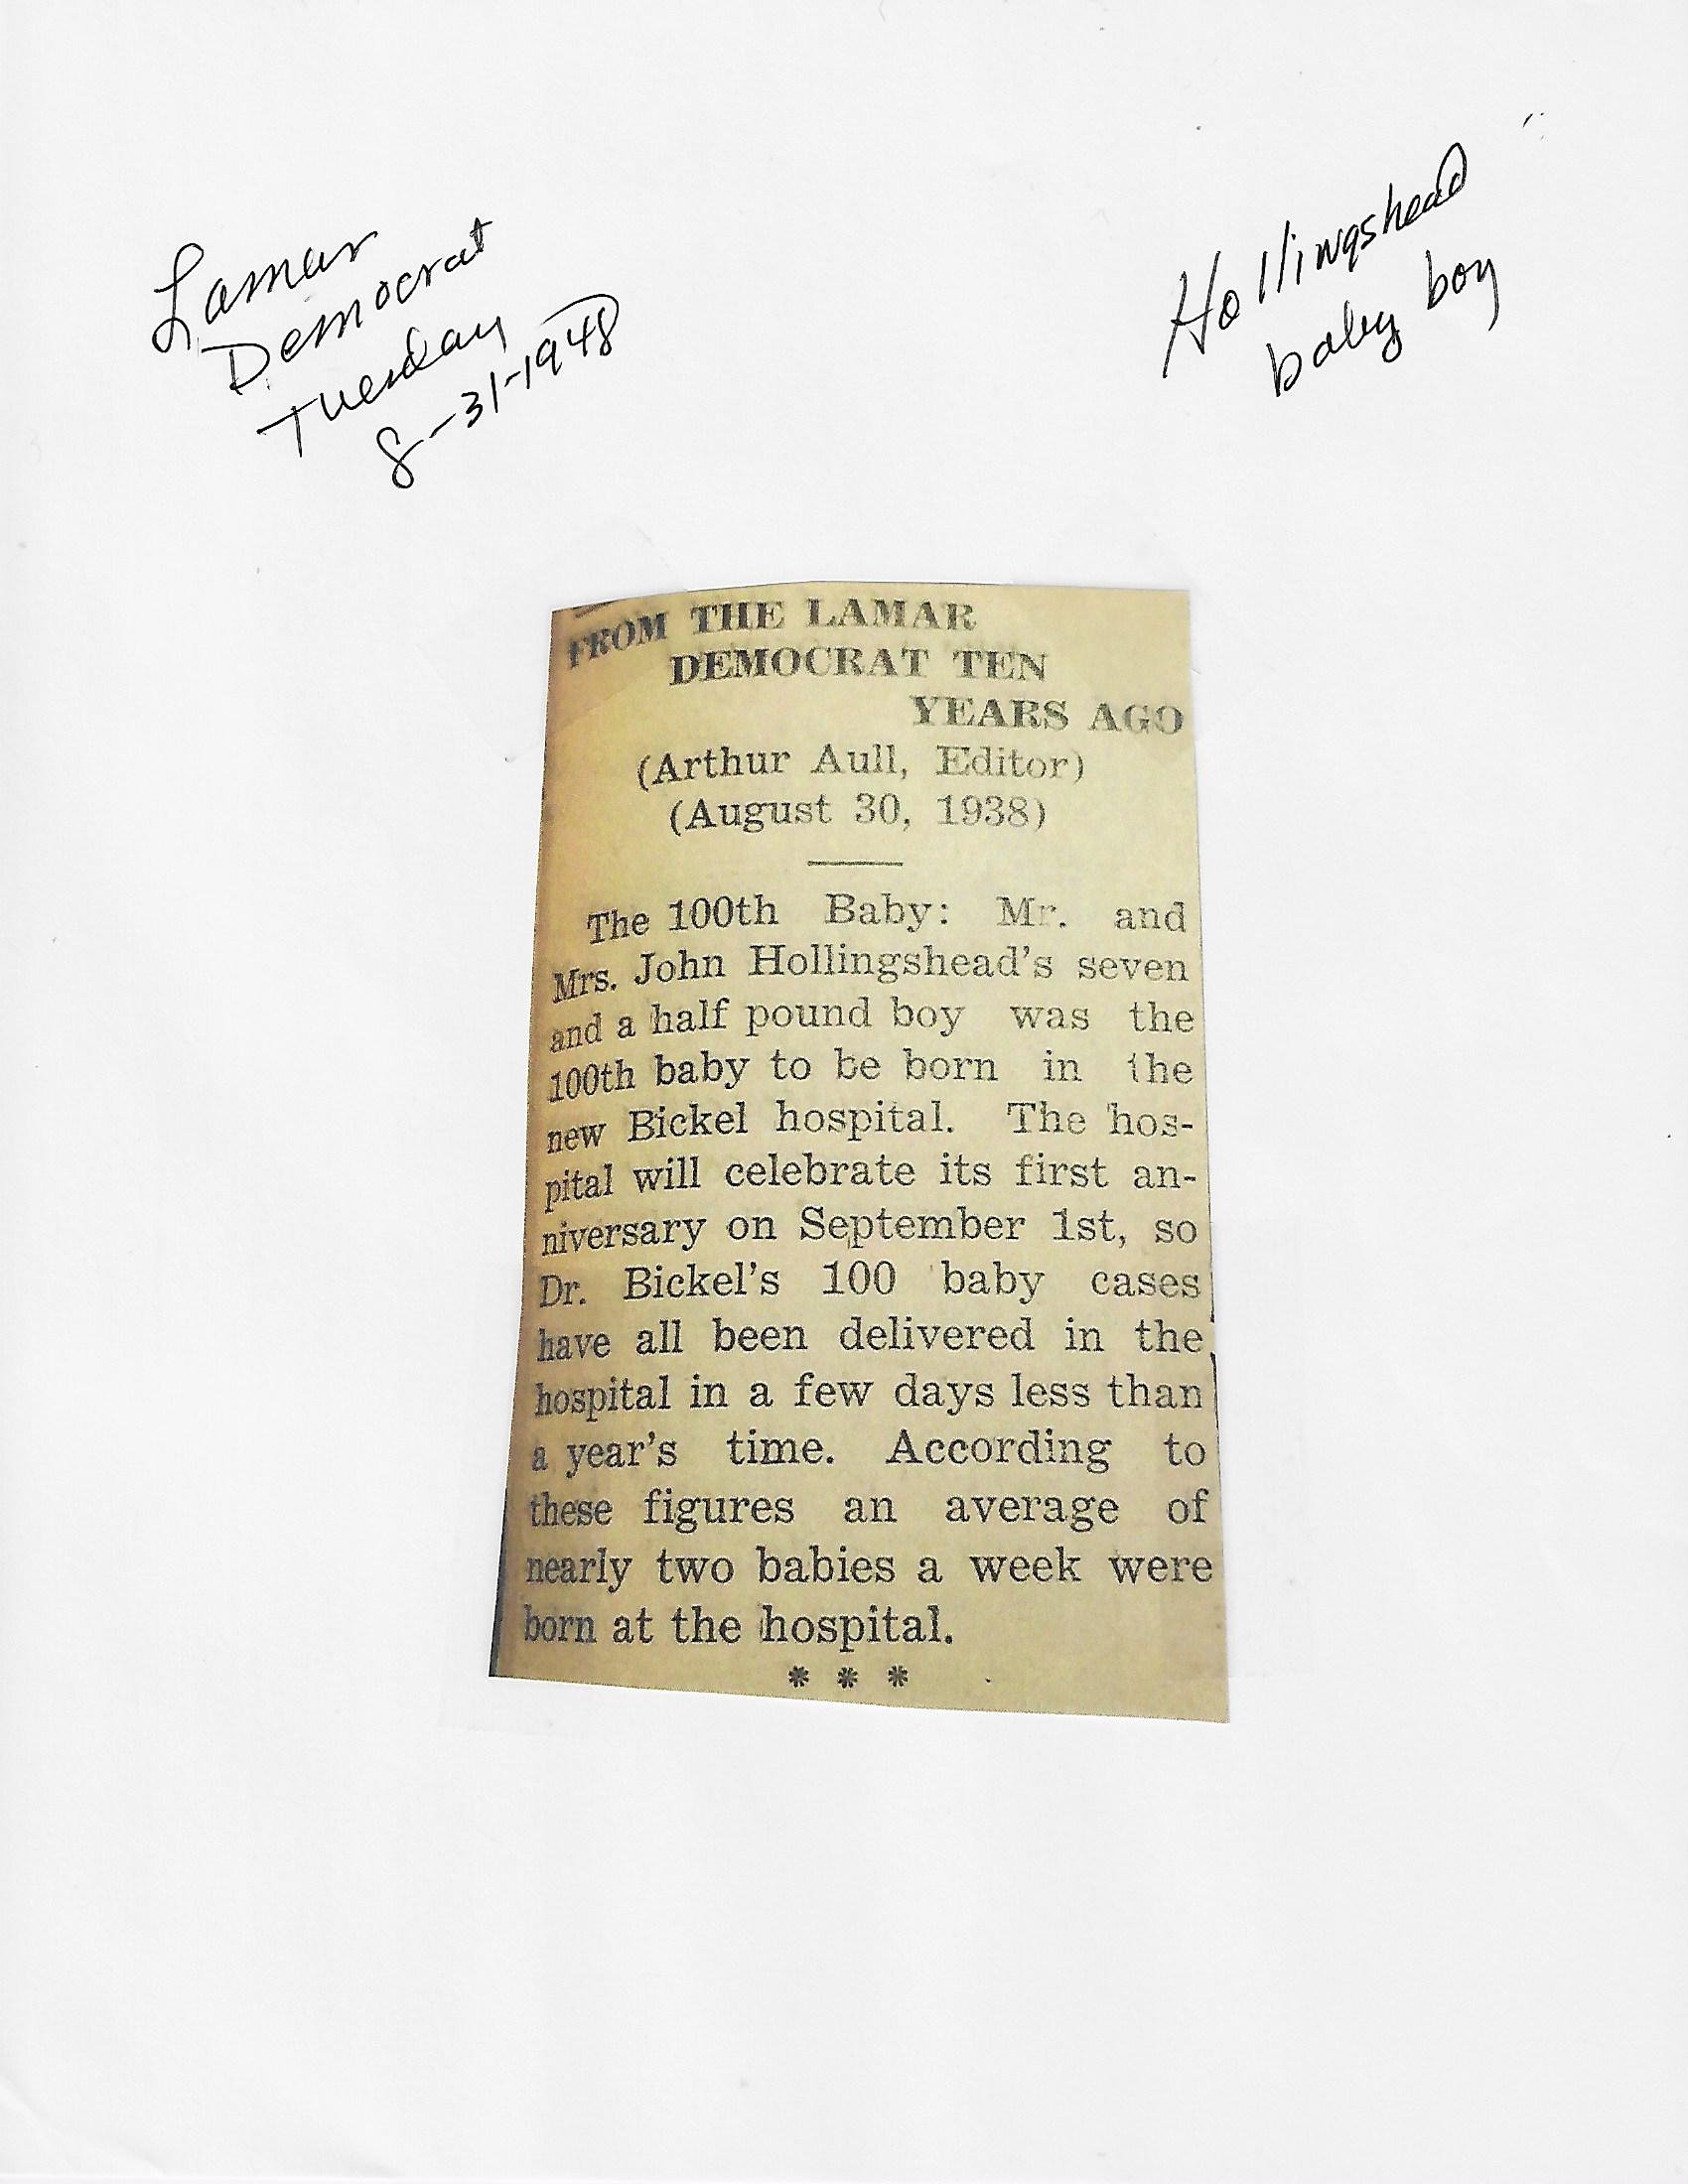 Lamar
Democrat
Tuesday
8-31-1948
Hollingshead
baby boy
FROM THE LAMAR
DEMOCRAT TEN
YEARS AGO
(Arthur Aull, Editor)
(August 30, 1938)
The 100th Baby: Mr. and
Mrs. John Hollingshead's seven
and a half pound boy was the
100th baby to be born in the
new Bickel hospital. The hos-
pital will celebrate its first an-
niversary on September 1st, so
Dr. Bickel's 100 baby cases
have all been delivered in the
hospital in a few days less than
a year's time. According to
these figures an average of
nearly two babies a week were
born at the hospital.
* * *